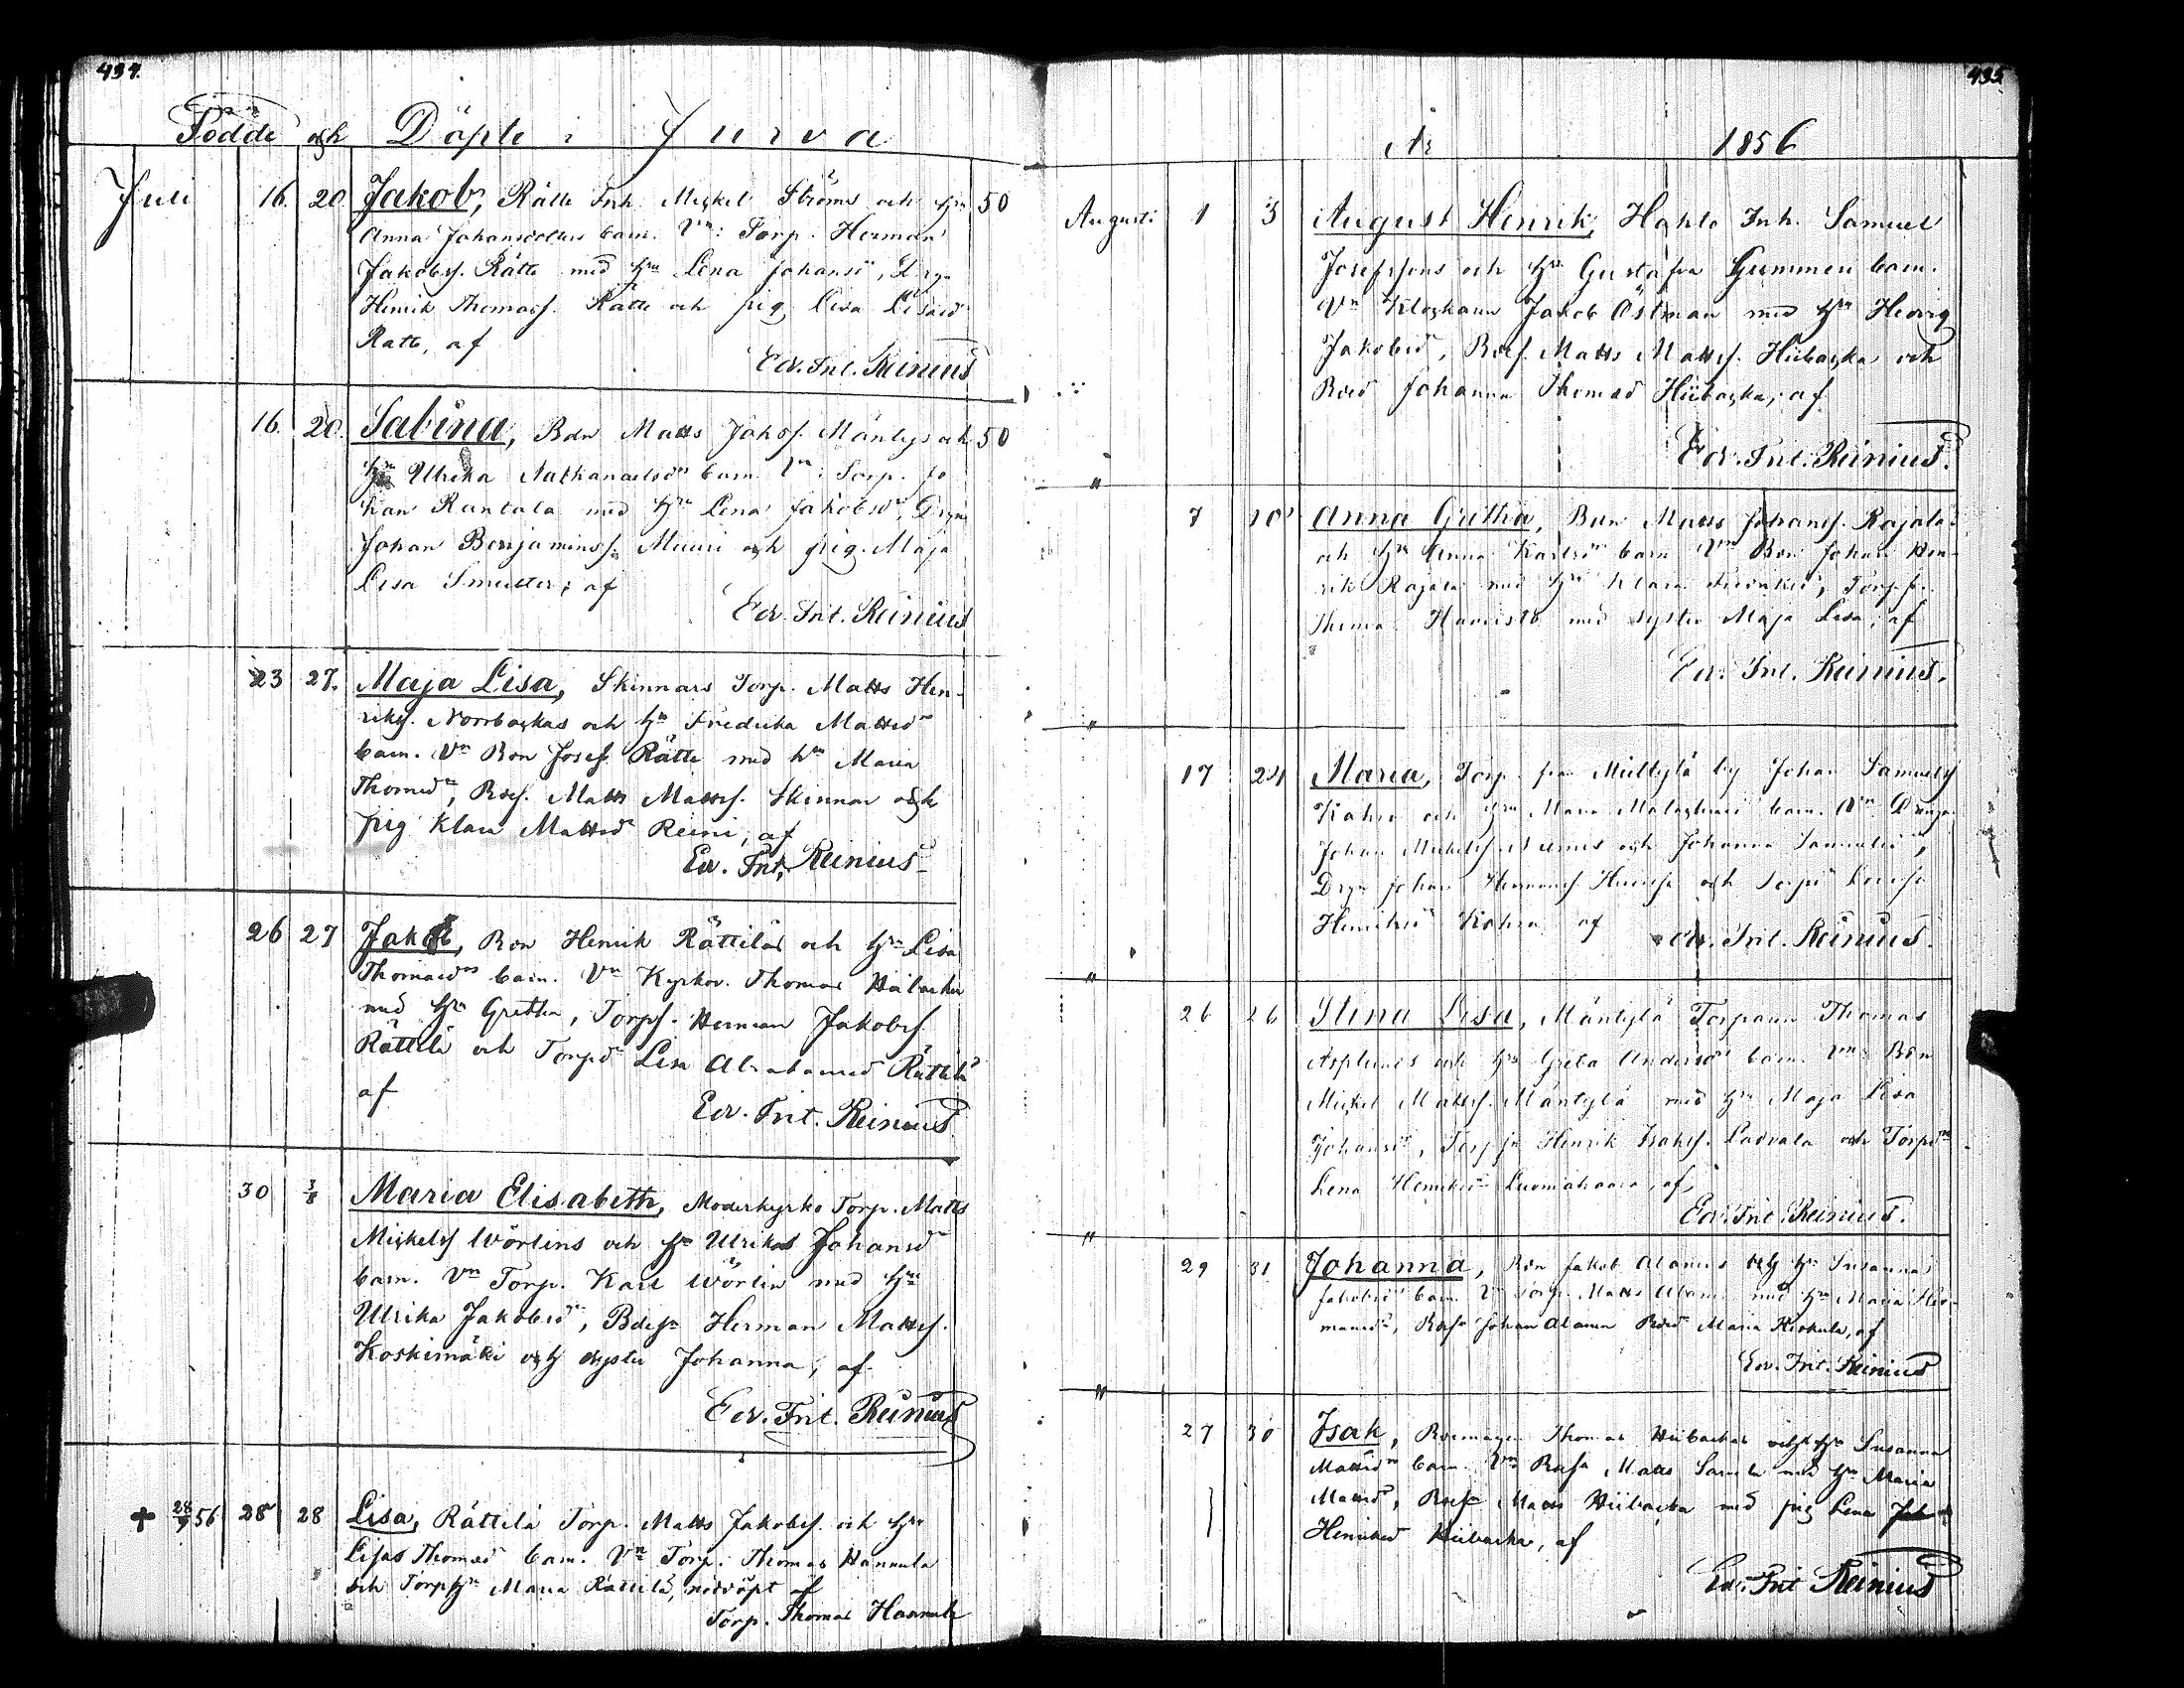 434.
Födde och Döpte i Jurva
Juli 16. 20 Jakob, Rätte Inh. Mickel Ströms och h:u 50
Anna Johansdotters barn. V:n: Torp. Herman
Jakobss. Rätte med h:u Lena Johansd:r, Drgn
Henrik Thomass. Rätte och pig. Lisa Lisasd
Rätte, af
Ed. Frit. Reinius
16. 20. Sabina, Bdn Matts Jakobs. Mäntys och 50
h:u Ulrika Nathanaelsd:rs barn. V:n: Torp. Jo
han Rantala med h:u Lena Jakobsd:r, Drgn
Johan Benjaminss. Muuri och pig. Maja
Lisa Smulter; af
Ed. Frit. Reinius
23 27. Maja Lisa, Skinnars Torp. Matts Hen-
rikss. Norrbackas och h:u Fredrika Mattsd:rs
barn. V:n Bon Josef Rätte med h:u Maria
Thomasd:r, Bdes. Matts Mattss. Skinnar och
pig Klara Mattsd:r Reini, af
Ed. Frit. Reinius
26 27 Jakob, Bon Henrik Rättiläs och h:u Lisa
Thomasd:rs barn. V:n Kyrkov. Thomas Hiibacka
med h:u Gretha, Torps. Herman Jakobss.
Rättilä och Torpd:r Lisa Abrahamsd Rättilä
af
Ed. Frit. Reinius
30 3/8 Maria Elisabeth, Moderkyrko Torp. Matts
Mickelss Wörlins och h:u Ulrikas Johansd:r
barn. V:n Torp. Karl Wörlin med h:u
Ulrika Jakobsd:r, Bdes:n Herman Mattss.
Koskimäki och syster Johanna, af
Ed. Frit. Reinius
+ 28/7 56 28 28 Lisa, Rättilä Torp. Matts Jakobss. och h:u
Lisas Thomasd barn. V:n Torp. Thomas Hannula
och Torph:u Maria Rättilä, nöddöpt af
Torp. Thomas Hannula
435
År 1856
Augusti 1 3 August Henrik, Hahto Inh. Samuel
Josefssons och h:u Gustafva Gummeri barn.
V:n Klockaren Jakob Östman med h:u Hedvig
Jakobsd, Bdes. Matts Mattss. Hiibacka och
Bded Johanna Thomasd Hiibacka, af
Ed. Frit. Reinius.
" 7 10 Anna Gretha, Bdn Matts Johanss. Rajala
och h:u Anna Karlsd:rs barn V:n Bon Johan Hen-
rik Rajala med h:u Klara Fredriksd, Torp.s.
Thomas Harristo med syster Maja Lisa, af
Ed. Frit. Reinius.
" 17 24 Maria, Torp. från Mietylä by Johan Samuelss
Kahra och h:u Maria barn. V:n Dräng
Johan Mickelss. Niemis och Johanna Samuelsd,
Drgn Johan Hermanss. och Torpd Lovisa
Henriksd Kahra af Ed. Frit. Reinius.
" 26 26 Stina Lisa, Mäntylä Torparen Thomas
Asplunds och h:u Greta Andersd:rs barn. V:n Bon
Mickel Mattss. Mäntylä med h:u Maja Lisa
Johansd:r, Torp.s:n Henrik Isakss. Ladvala och Torpd:r
Lena Henriksd:r Luomahaara, af
Ed. Frit. Reinius.
" 29 31 Johanna, Bon Jakob Alanens och h:u Susanna
Jakobsd:s barn V:n Torp. Matts Alanen med h:u Maria Her-
mansd:r, Bdes:n Johan Alanen Bded Maria Kiskula, af
Ed. Frit. Reinius
" 27 30 Isak, Bdemågen Thomas Hiibackas och h:u Susanna
Mattsd:rs barn. V:n Bdes:n Matts med h:u Maria
Mattsd, Bdes:n Matts Hiibacka med pig Lena
Henriksd Hiibacka, af
Ed. Frit Reinius